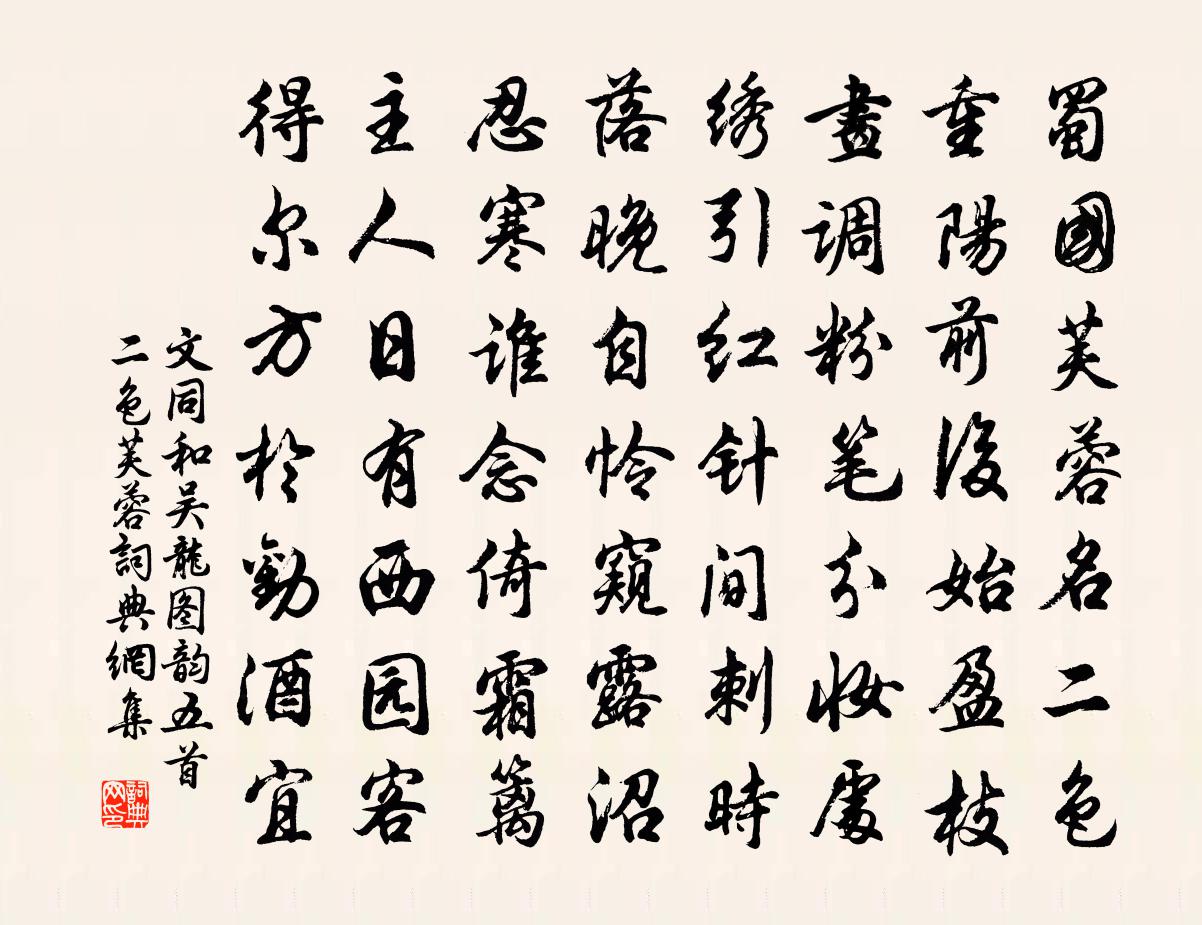 蜀國芙蓉名二色
重陽前後始盈枝
畫調粉笔分妝處
绣引红针间刺時
落晚自怜窺露沼
忍寒谁念倚霜篱
主人日有西园客
得尔方於勸酒宜
文同和吴龍图韵五首
二色芙蓉詞典網集
詞典
网印